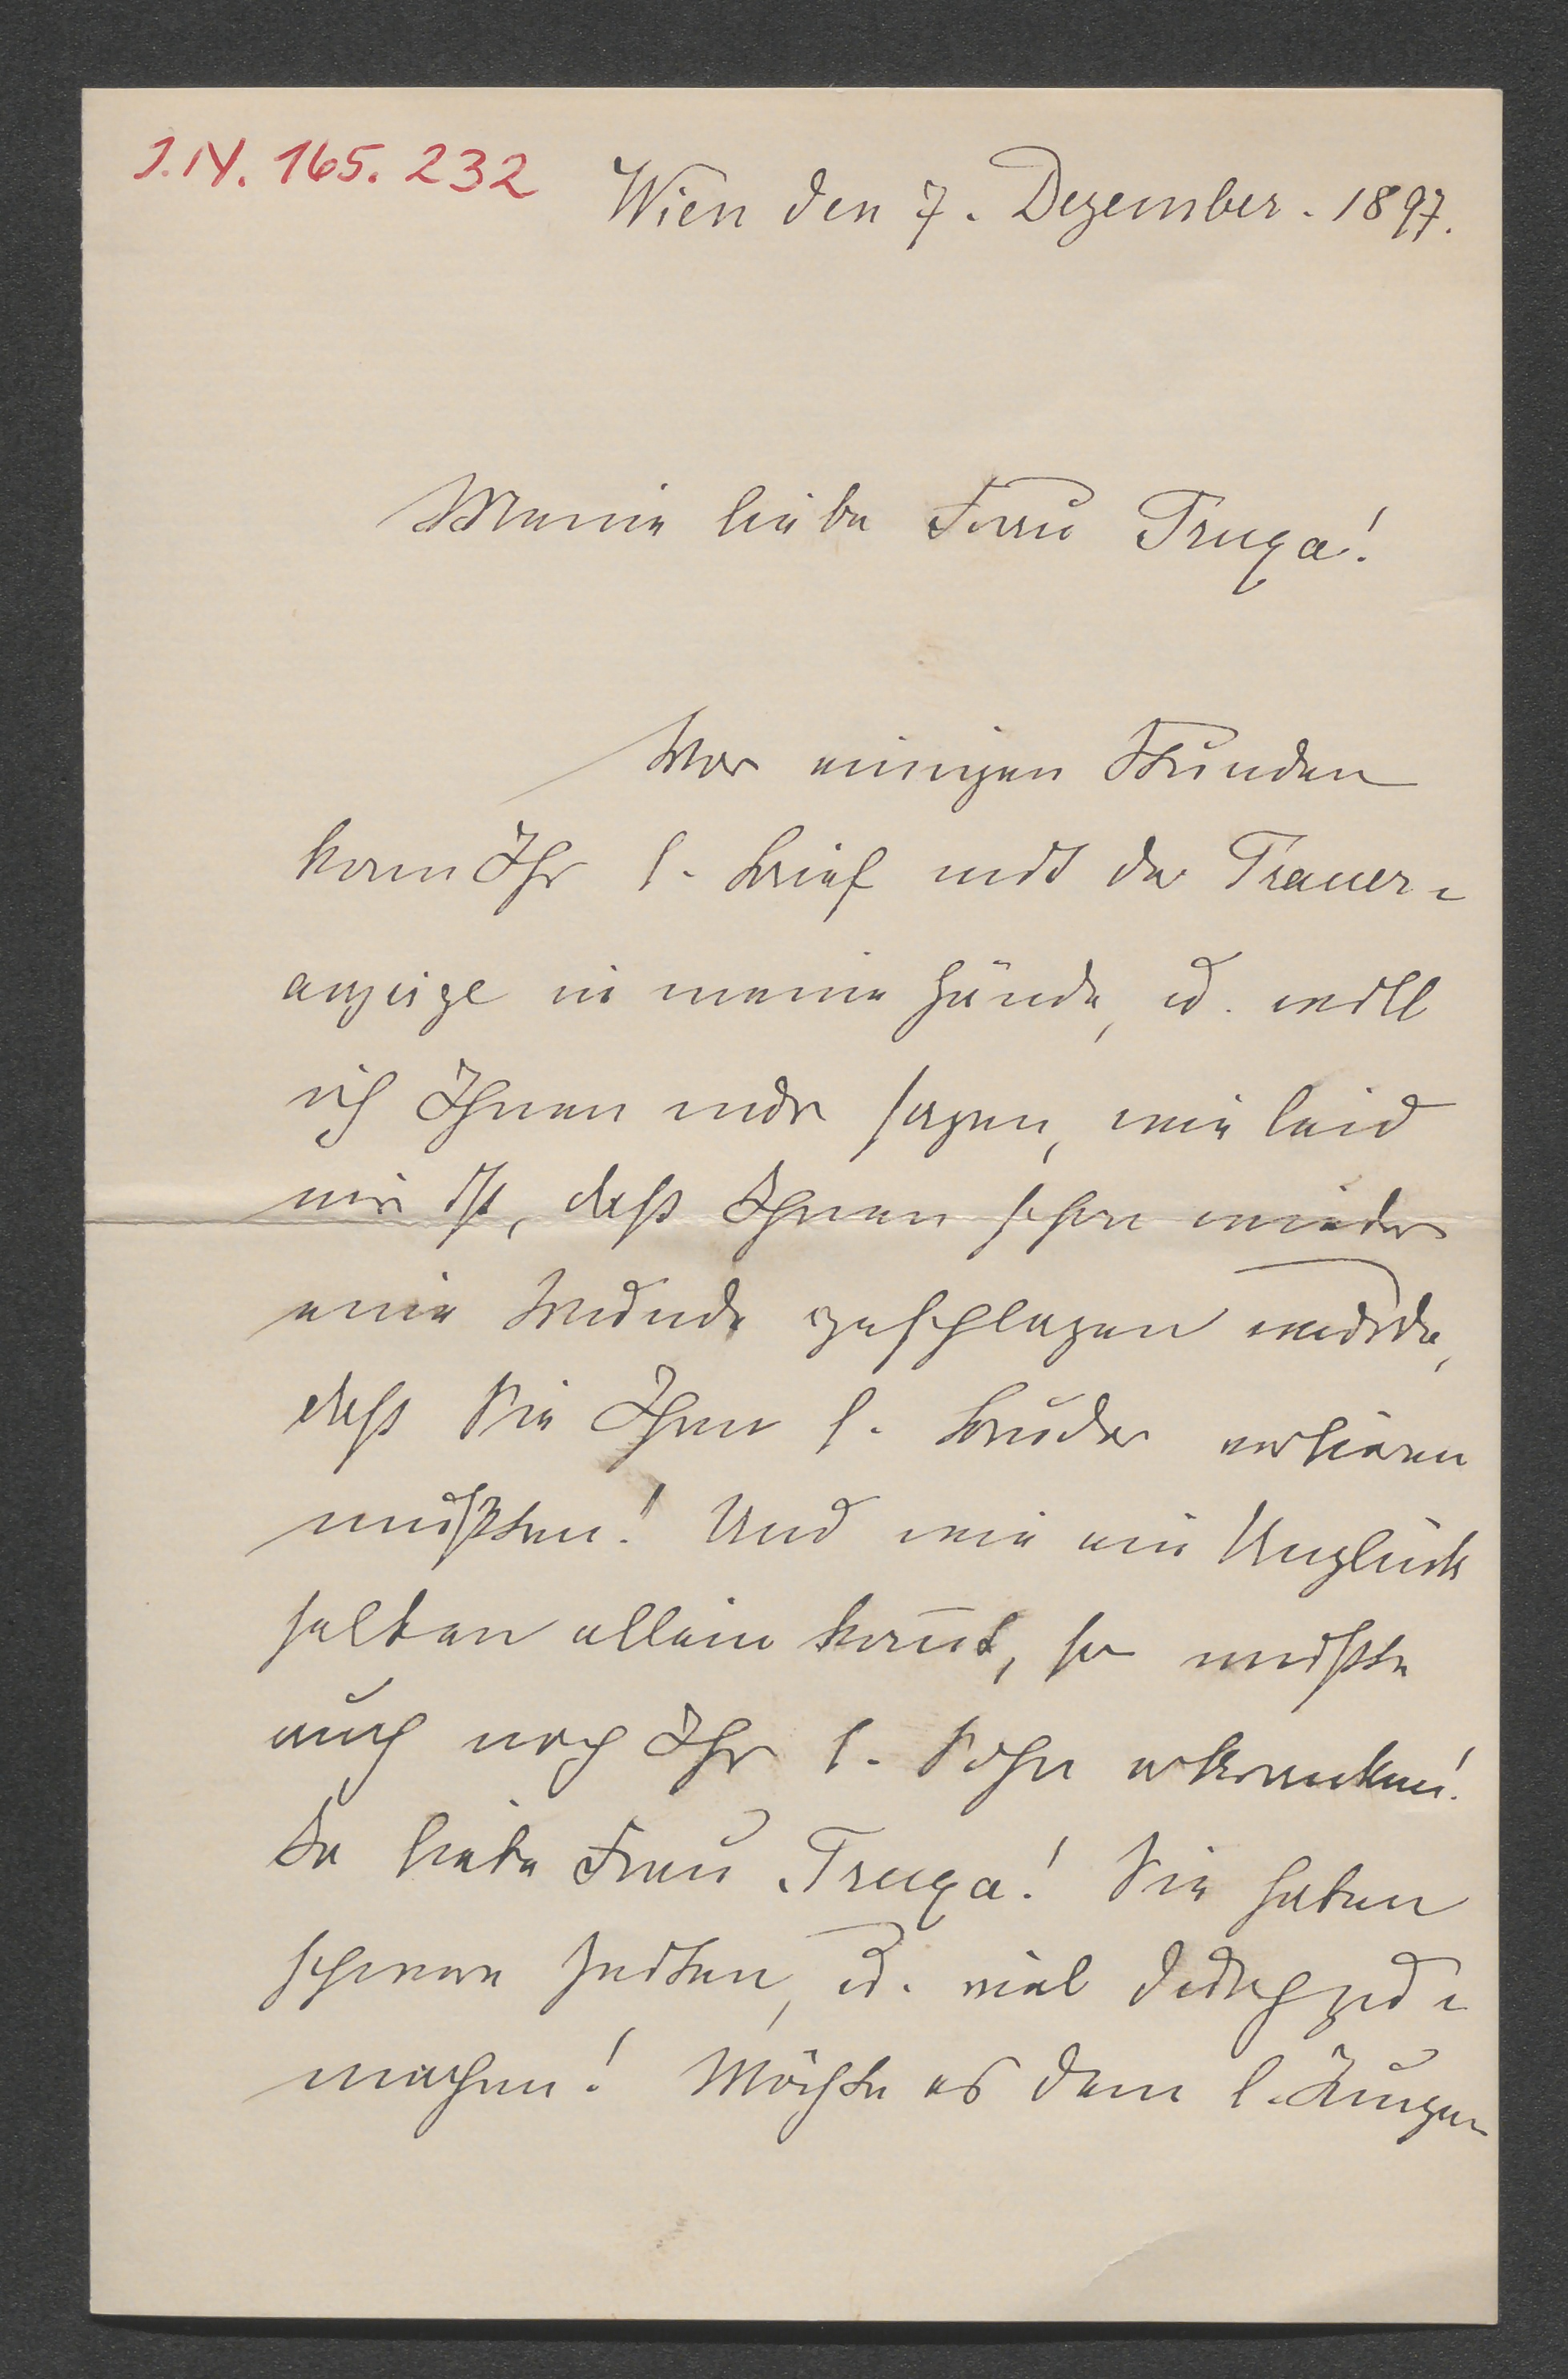 I.N. 165.232
Wien den 7. Dezember. 1897.
Meine liebe Frau Truxa!
Vor einigen Stunden
kam Ihr l. Brief mit der Trauer-
anzeige in meine Hände, u. will
ich Ihnen nur sagen, wie leid
mir ist, daß Ihnen schon wieder
eine Wunde geschlagen wurde,
daß Sie Ihren l. Bruder verlieren
mußten! Und wie ein Unglück
selten allein kom̅t, so mußte
auch noch Ihr l. Sohn erkranken!
Sie liebe Frau Truxa! Sie haben
schwere Zeiten, u. viel durchzu-
machen! Möchte es dem l. Jungen